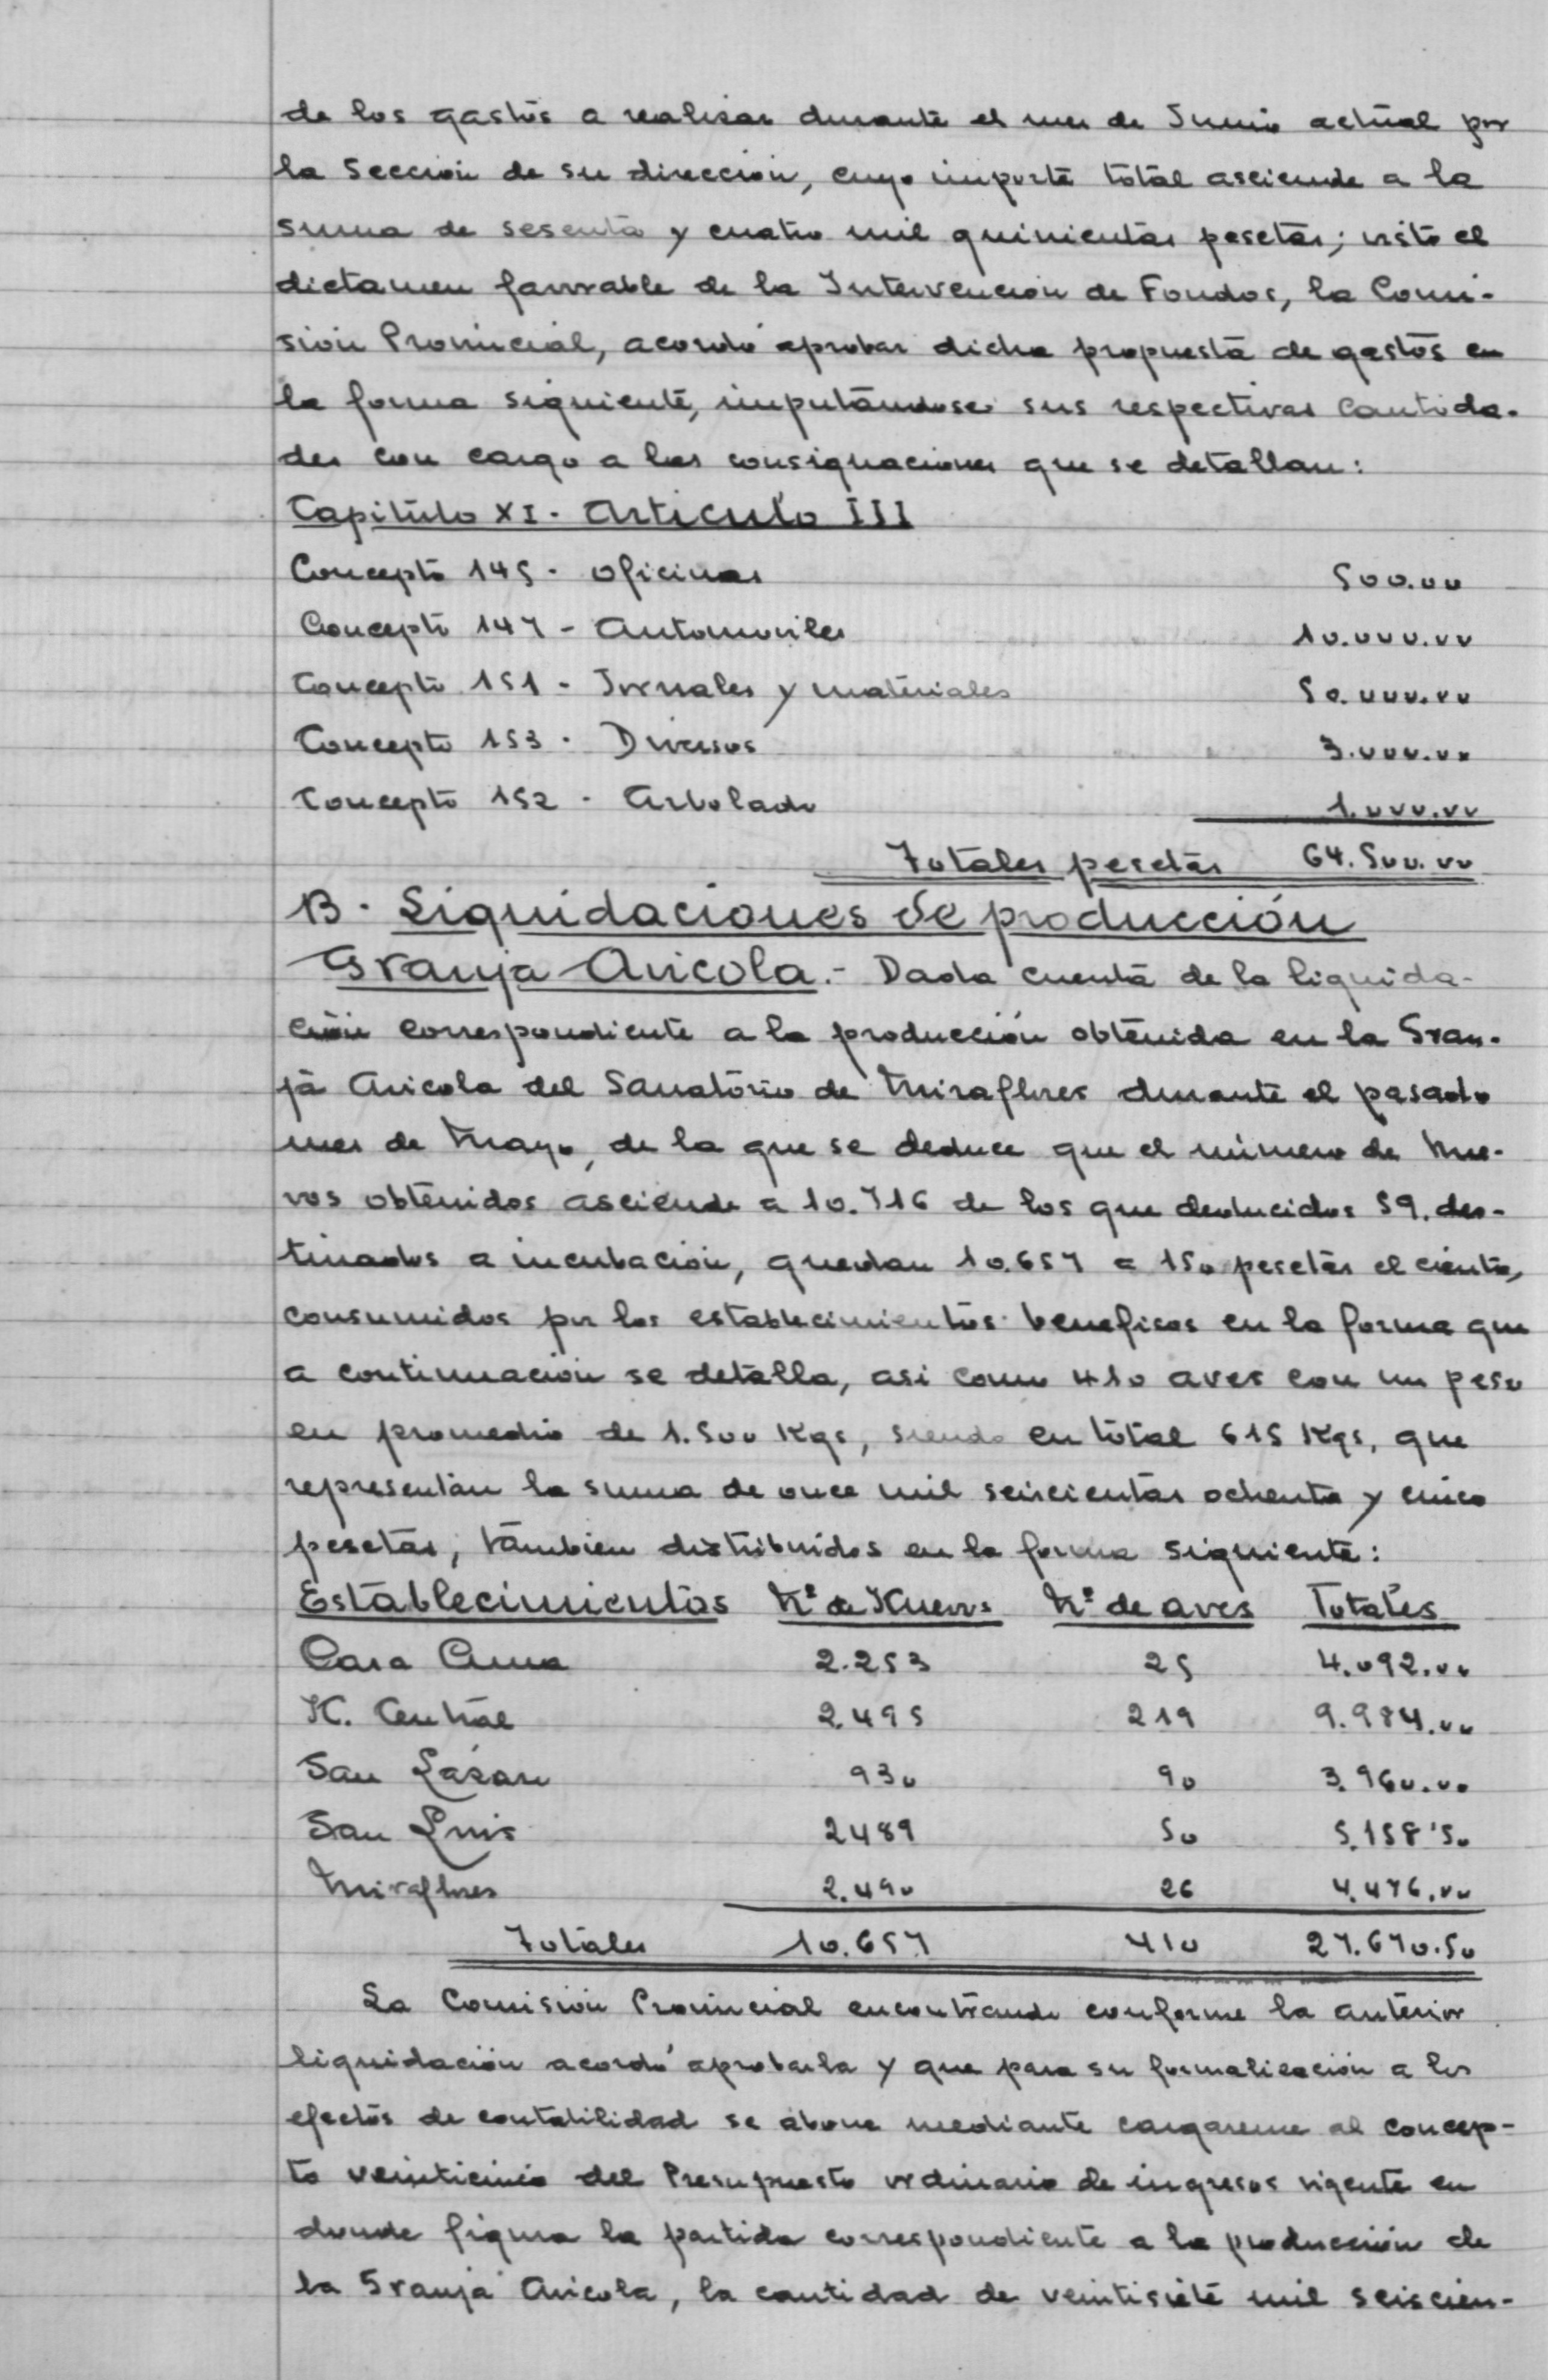 de los gastos a realizar durante el mes de Junio actual por
la Sección de su dirección, cuyo importe total asciende a la
suma de sesenta y cuatro mil quinientas pesetas; visto el
dictamen favorable de la Intervención de Fondos, la Comi-
sión Provincial, acordó aprobar dicha propuesta de gastos en
la forma siguiente, imputándose sus respectivas cantida-
des con cargo a las consignaciones que se detallan:
Capítulo XI - Artículo III
Concepto 145 - Oficinas 500.00
Concepto 147 - Automoviles 10.000.00
Concepto 151 - Jornales y materiales 50.000.00
Concepto 153 - Diversos 3.000.00
Concepto 152 - Arbolado 1.000.00
Totales pesetas 64.500.00
B - Liquidaciones de producción
Granja Avicola.- Dada cuenta de la liquida-
ción correspondiente a la producción obtenida en la Gran-
ja Avicola del Sanatorio de Miraflores durante el pasado
mes de Mayo, de la que se deduce que el número de hue-
vos obtenidos asciende a 10.716 de los que deducidos 59. des-
tinados a incubación, quedan 10.657 a 150 pesetas el ciento,
consumidos por los establecimientos beneficos en la forma que
a continuación se detalla, asi como 410 aves con un peso
en promedio de 1.500 Kgs, siendo en total 615 Kgs, que
representan la suma de once mil seiscientas ochenta y cinco
pesetas, tambien distribuidos en la forma siguiente:
Establecimientos Nº de Huevos Nº de aves Totales
Casa Cuna 2.253 25 4.092.00
H. Central 2.495 219 9.984.00
San Lázaro 930 90 3.960.00
San Luis 2489 50 5.158'50
Miraflores 2.490 26 4.476.00
Totales 10.657 410 27.670.50
La Comisión Provincial encontrando conforme la anterior
liquidación acordó aprobarla y que para su formalización a los
efectos de contabilidad se abone mediante cargareme al concep-
to veinticinco del Presupuesto ordinario de ingresos vigente en
donde figura la partida correspondiente a la producción de
la Granja Avicola, la cantidad de veintisiete mil seiscien-